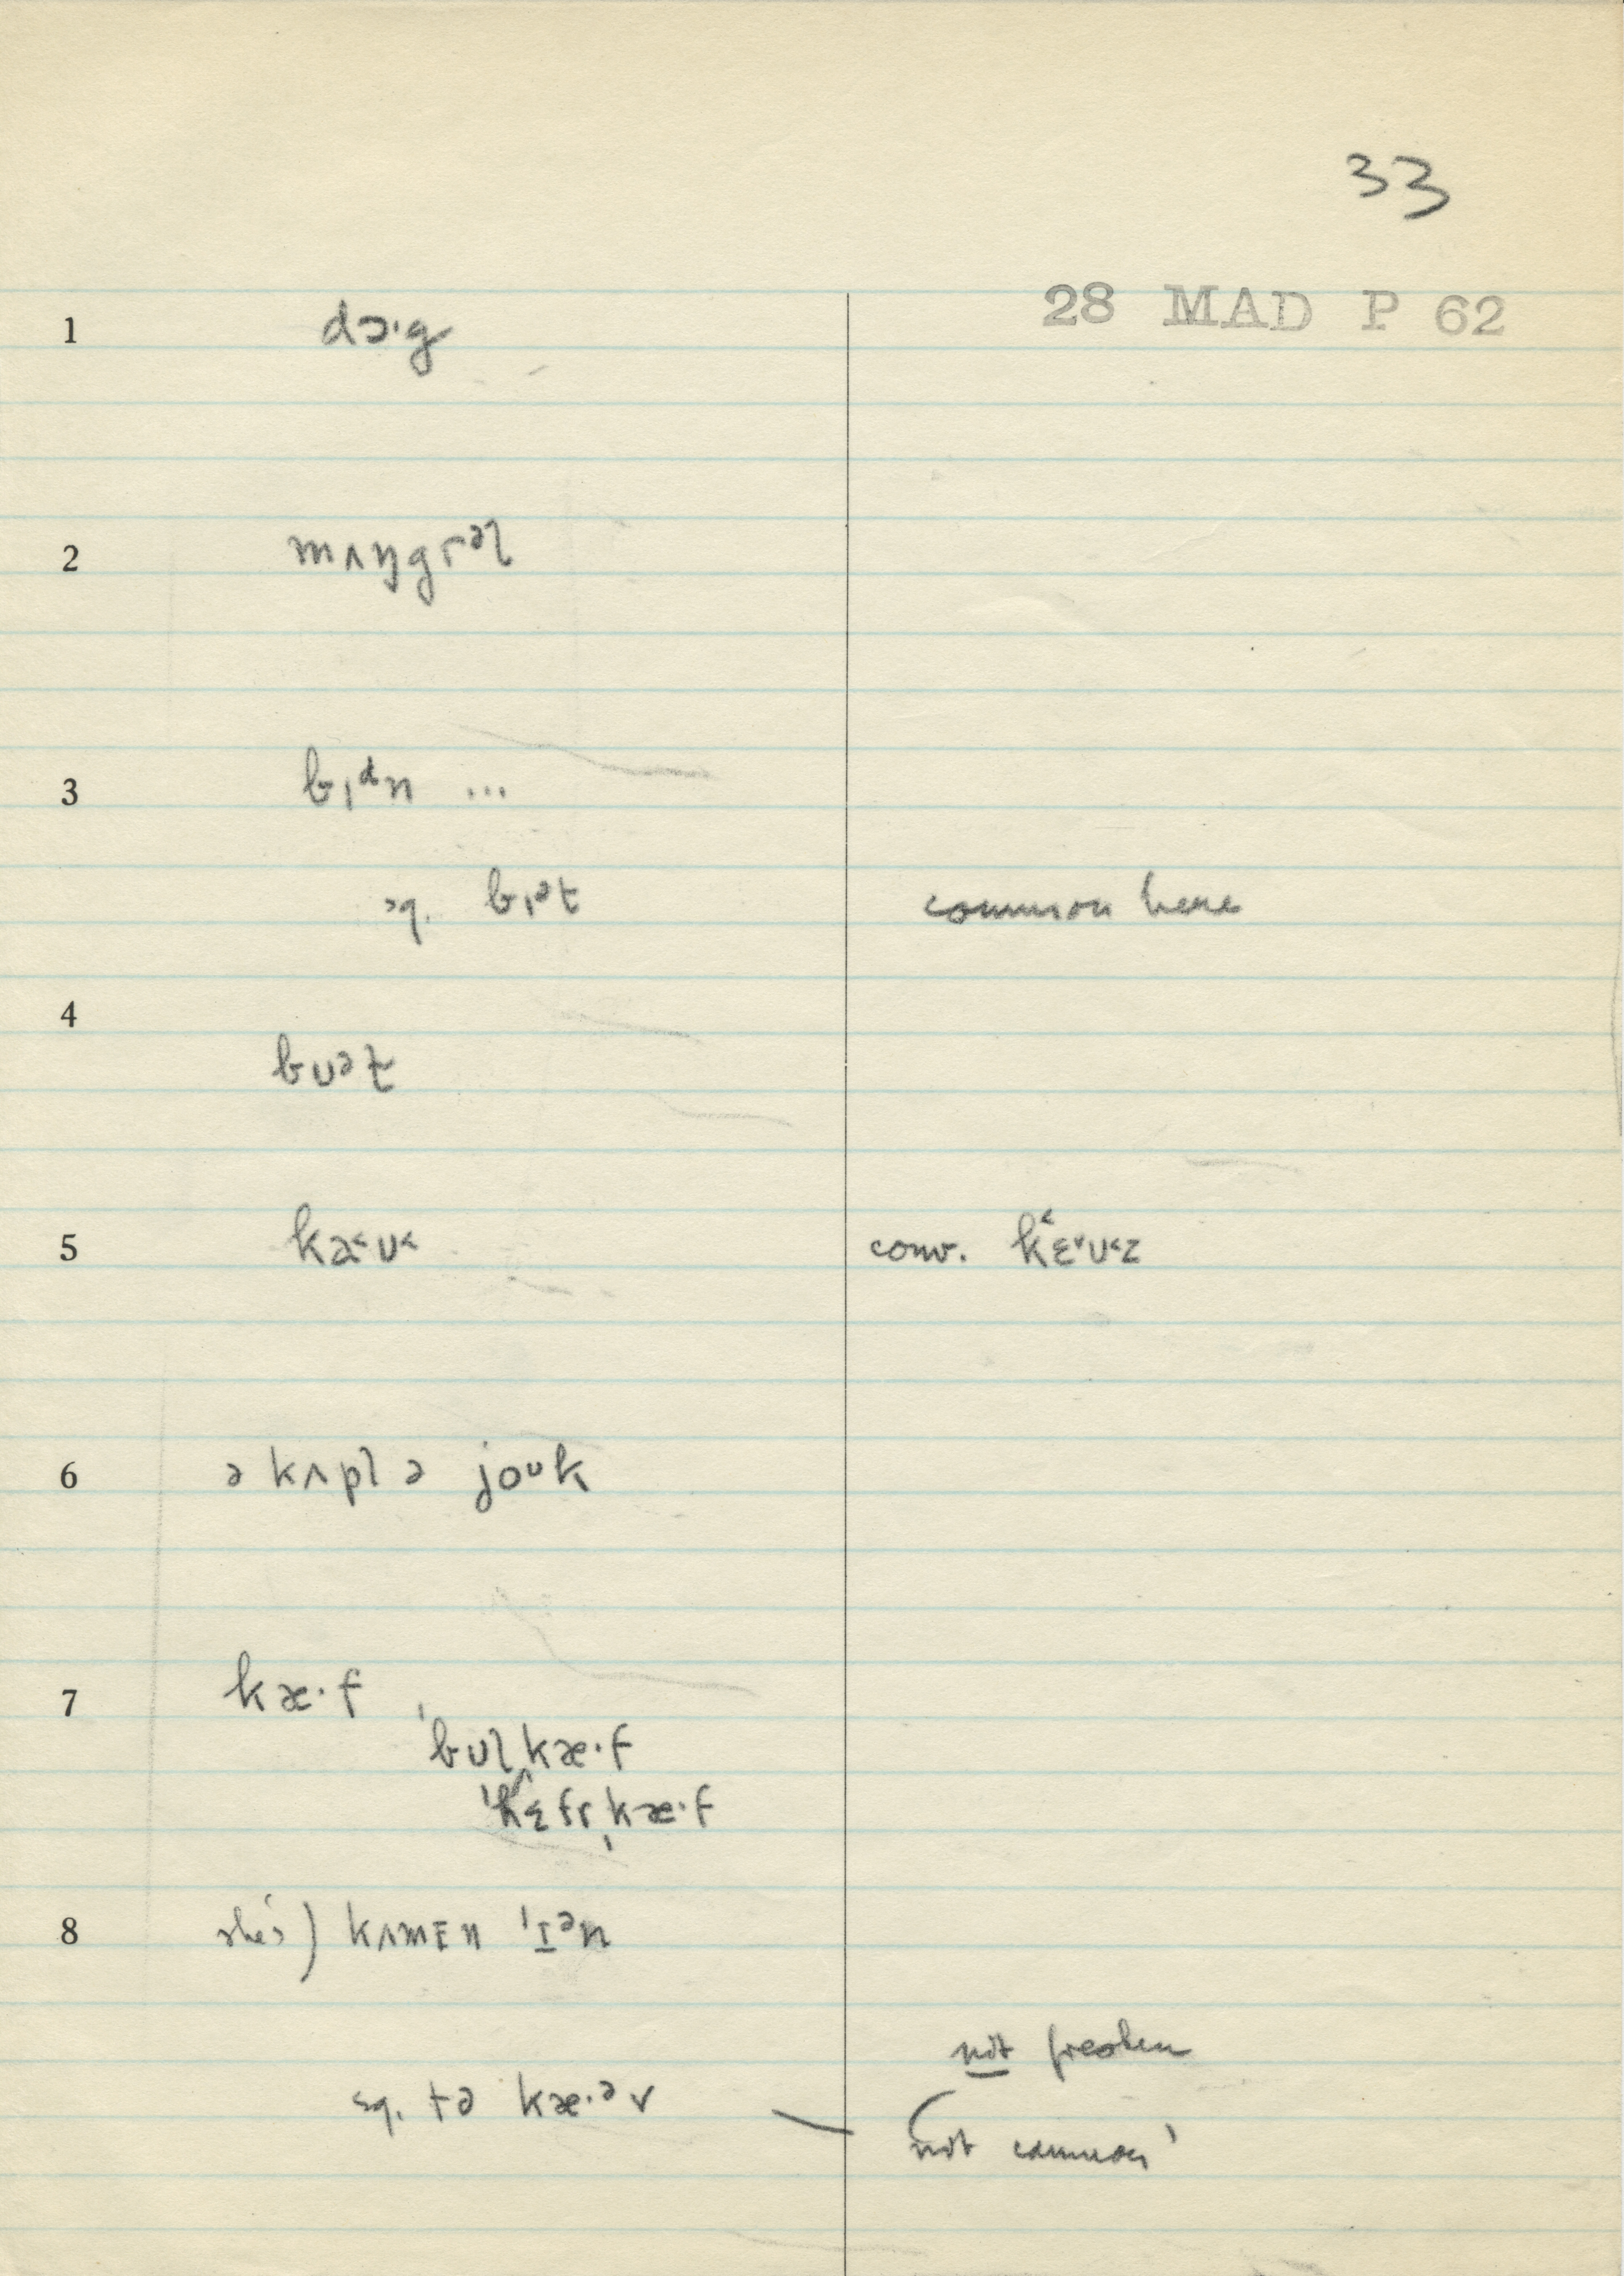 33
28 MAD P 62
1 dɔ·g
2 mʌŋgrəl
3 bɪᵈn ...
sq. bɪət common here
4
bʊət
5 kæ˂ʊ˂ conv. k˂ɛ˅ʊ˂z
6 ə kʌpl ə joᵘk
7 kæ·f
ˈbʊlˌkæ·f
ˈhɛfr̩ˌkæ·f
8 she's) kʌmɛn ˈɪᵊn
not freshen
sq. tə kæ·ᵊv
not common'